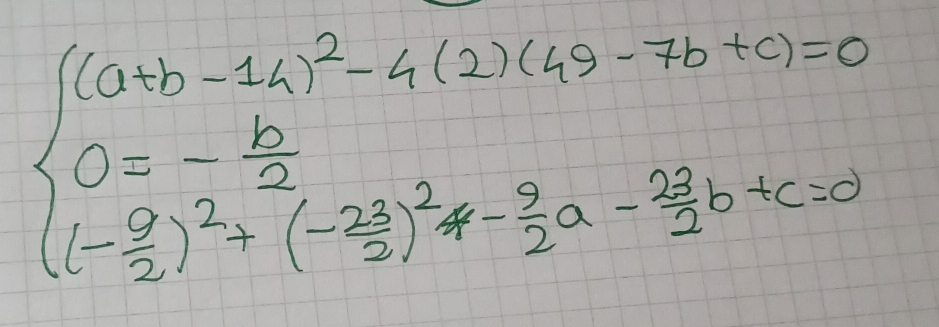 (a+b-14)²-4(2)(49-7b+c)=0
0=-b/2
(-9/2)²+(-23/2)²-9/2a-23/2b+c=0